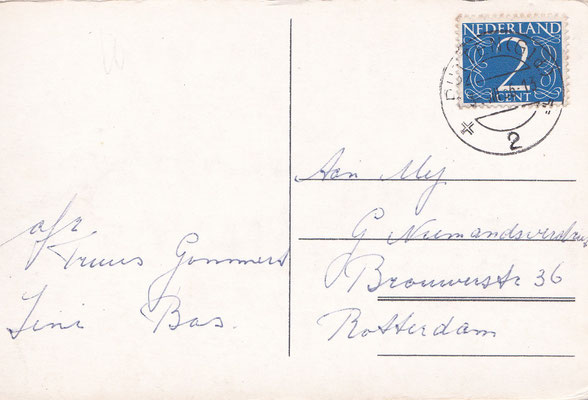 NEDERLAND
2
CENT
2
Aan Mej
G Niemandsverdriet
Brouwerstr 36
Rotterdam
afz
Truus Gommers
Sini Bas.